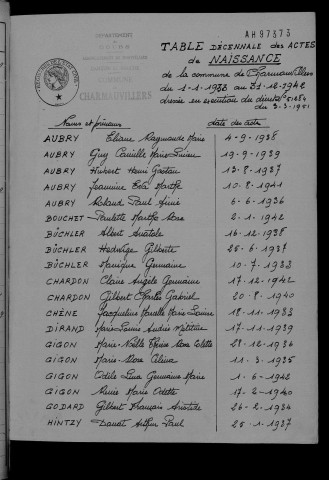 AH 97373
DEPARTEMENT
COMMUNE
CHARMAUVILLERS
TABLE DÉCENNALE des ACTES
de NAISSANCE
de la commune de Charmauvillers
du 1-1-1933 au 31-12-1942
dressée en exécution du décret
du 3-3-1951
Noms et prénoms date des actes
AUBRY Eliane Raymonde Marie 4-9-1938
AUBRY Guy Camille Marie 19-9-1939
AUBRY Hubert Henri Gaston 13-8-1937
AUBRY Jeannine Eva Marthe 10-8-1941
AUBRY Roland Paul Aimé 6-6-1936
BOUCHET Paulette Marthe 2-1-1942
BÜCHLER Albert 16-12-1938
BÜCHLER Hedwige Gilberte 25-6-1937
BÜCHLER Monique Germaine 10-7-1933
CHARDON Claire Angèle Germaine 17-12-1942
CHARDON Gilbert Charles Gabriel 20-8-1940
CHÊNE Jacqueline Marie 18-11-1933
DIRAND Marie-Louise Andrée 17-11-1939
GIGON Marie-Noëlle Colette 28-12-1936
GIGON Marie 11-3-1935
GIGON Odile Lina Germaine Marie 1-6-1942
GIGON Marie Odette 17-2-1940
GODARD Gilbert François Aristide 26-2-1934
HINTZY Donat Arthur Paul 25-1-1937